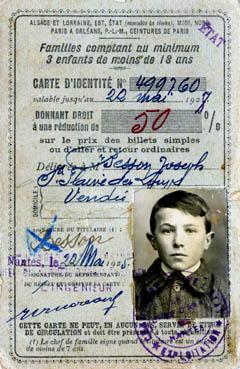 ALSACE ET LORRAINE, EST, ÉTAT (ensemble du réseau), MIDI, NORD
PARIS A ORLÉANS, P.-L.-M., CEINTURES DE PARIS
ÉTAT
Familles comptant au minimum
3 enfants de moins de 18 ans
CARTE D'IDENTITÉ N° 499760
valable jusqu'au 22 mai 1927
DONNANT DROIT
à une réduction de 50 %
sur le prix des billets simples
ou d'aller et retour ordinaires
Délivrée à M Besson Joseph
DOMICILE
Vendée
SIGNATURE DU TITULAIRE (1) :
Besson
Nantes, le 22 Mai 192
SIGNATURE DU REPRÉSENTANT
L'INGÉNIEUR
EXPLOITATION
CETTE CARTE NE PEUT, EN AUCUN CAS, SERVIR DE TITRE
DE CIRCULATION, ET DOIT ÊTRE PRÉSENTÉE à toute
(1) Le chef de famille signe quand le titulaire est un enfant
de moins de 7 ans.